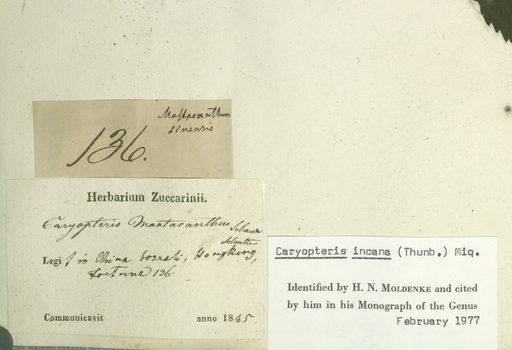 Mastacanthus
sinensis
136.
Herbarium Zuccarinii.
Caryopteris Mastacanthus Schauer
Legi f in China boreali, Hongkong,
Fortune 136.
Communicavit anno 1845
Caryopteris incana (Thunb.) Miq.
Identified by H. N. MOLDENKE and cited
by him in his Monograph of the Genus
February 1977